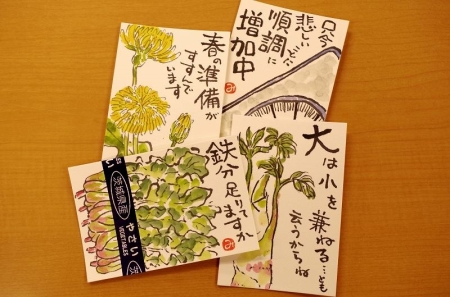 春の準備が
すすんで
います
只今
悲しいほどに
順調に
増加中
み
鉄分足りてますか
茨城県産
やさい
大は小を
兼ねる…とも
云うからね